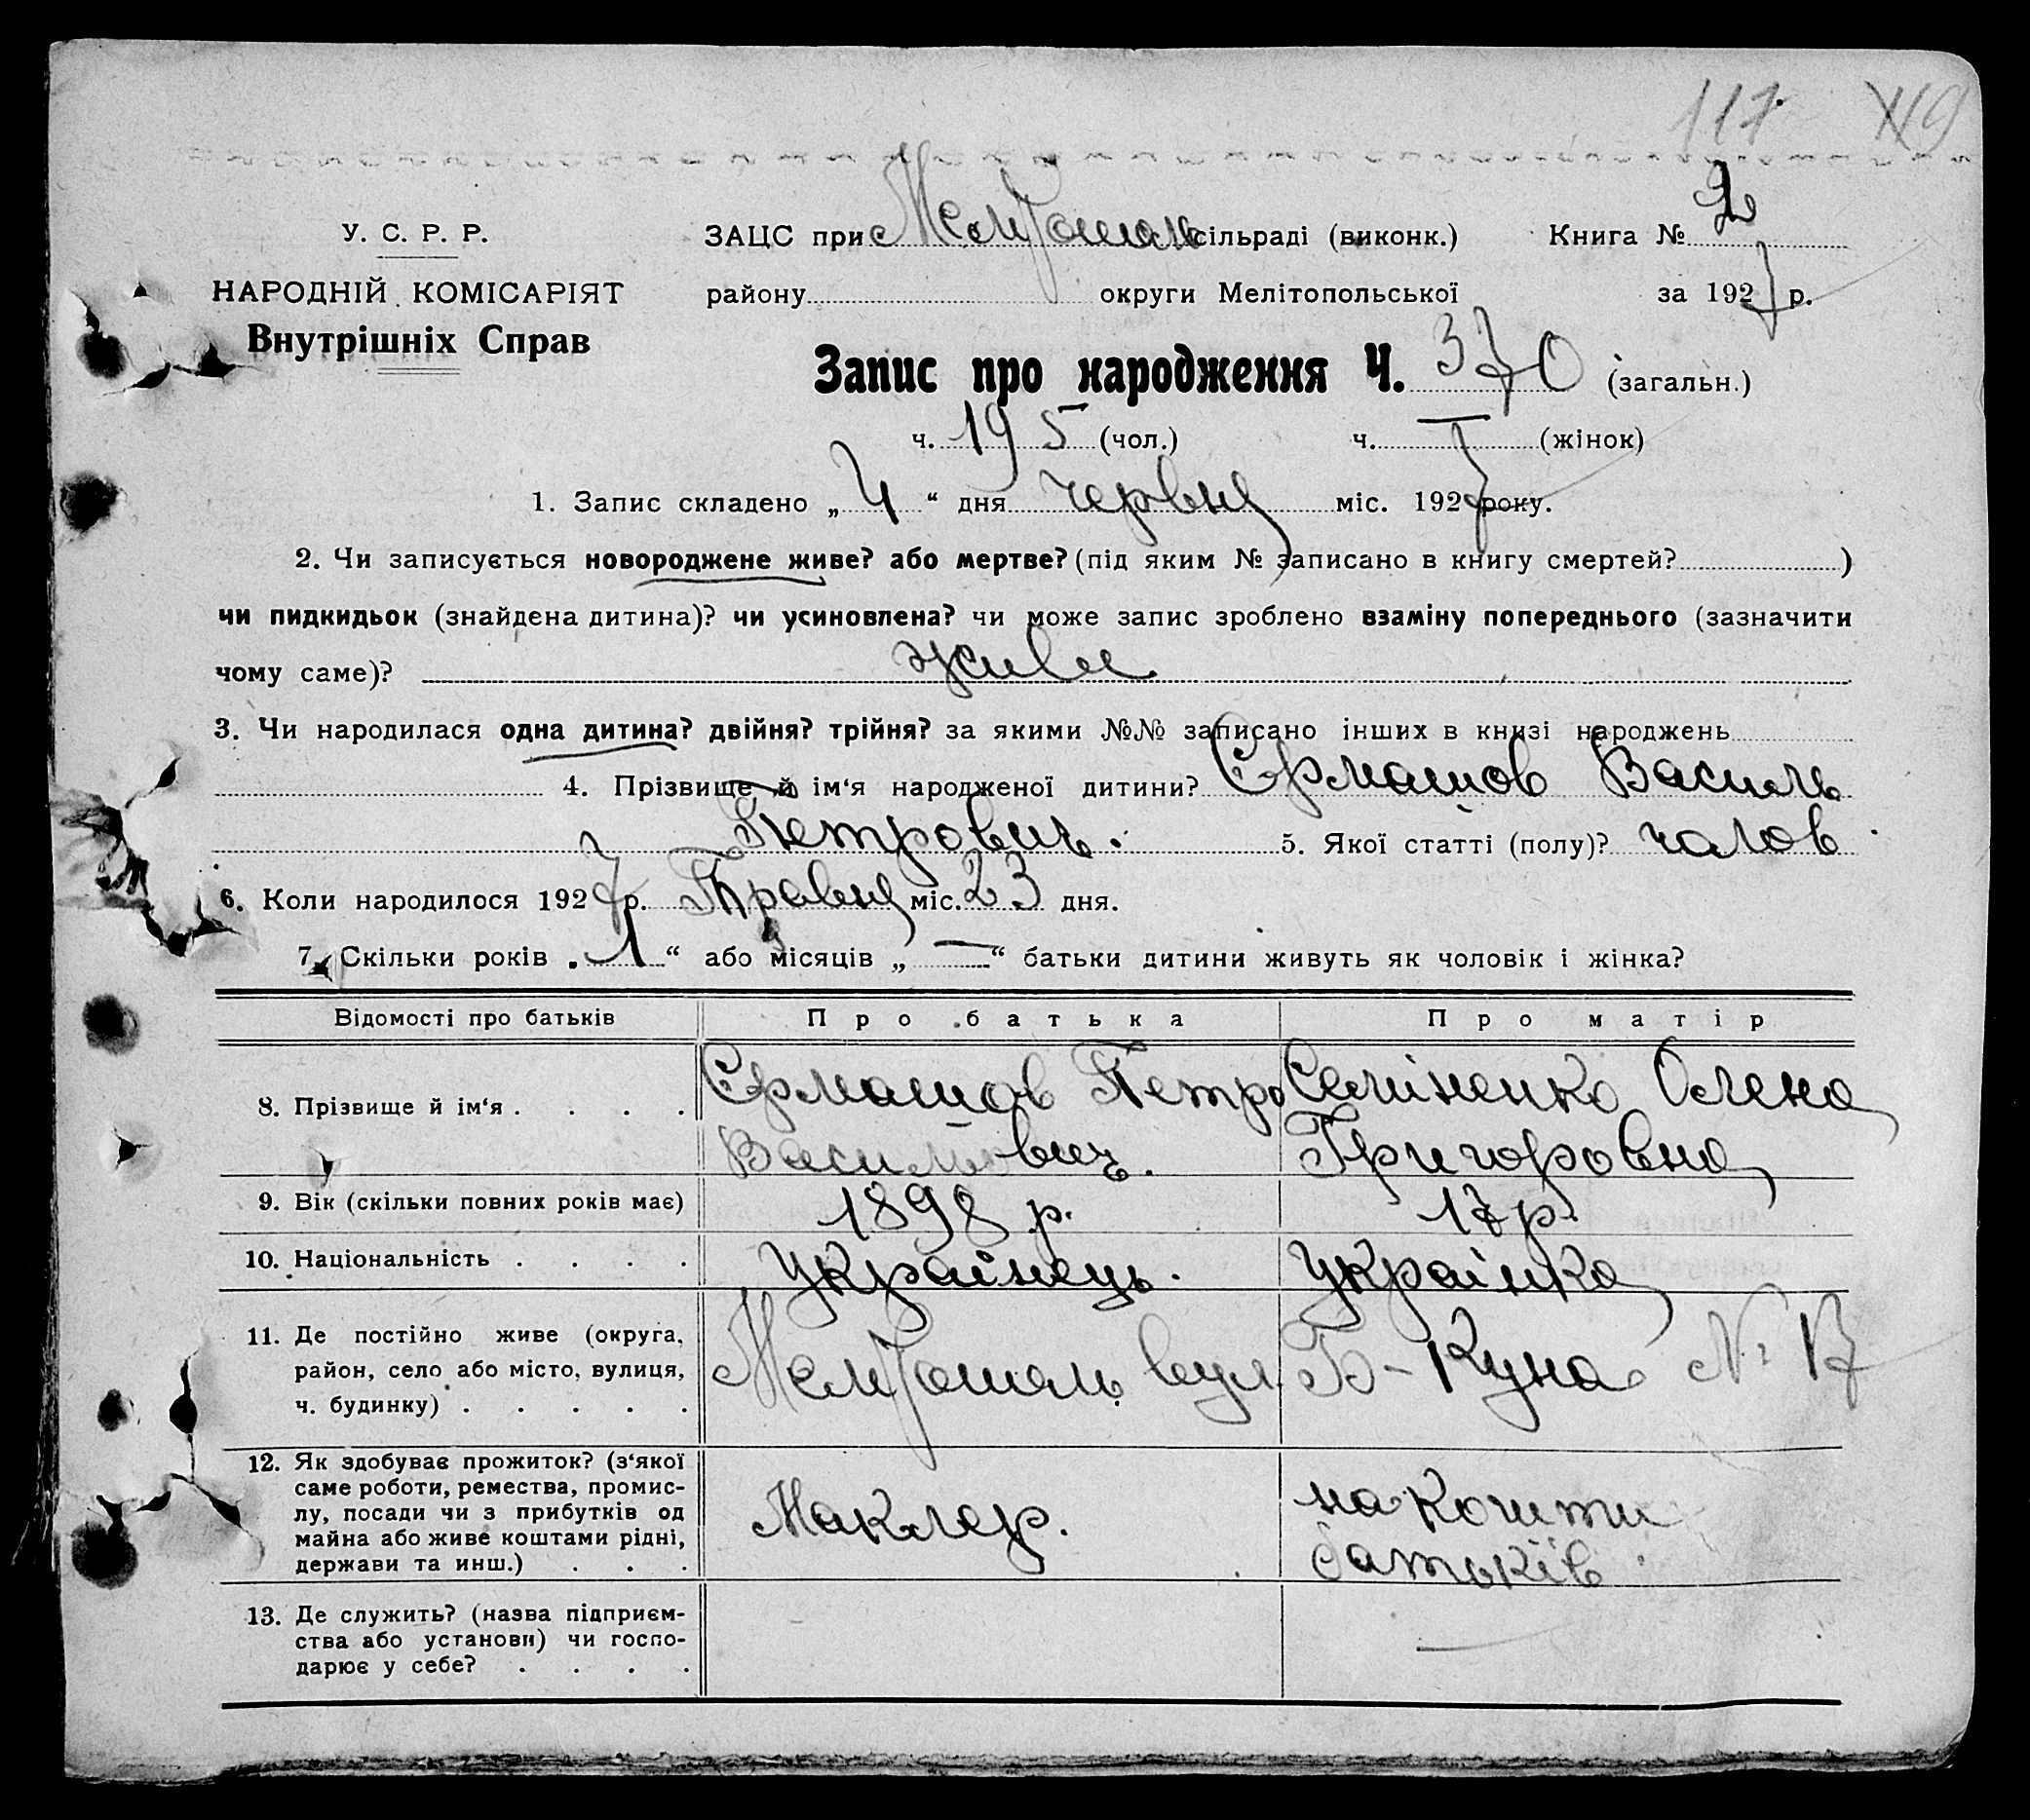 117 119
У. С. Р. Р. ЗАЦС при Мелітополь сільраді (виконк.) Книга № 2
НАРОДНІЙ КОМІСАРІЯТ району округи Мелітопольської за 1927 р.
Внутрішніх Справ
Запис про народження Ч. 370 (загальн.)
ч. 195 (чол.) ч. — (жінок)
1. Запис складено „4“ дня червня міс. 1927 року.
2. Чи записується новороджене живе? або мертве? (під яким № записано в книгу смертей? )
чи пидкидьок (знайдена дитина)? чи усиновлена? чи може запис зроблено взаміну попереднього (зазначити
чому саме)? живе
3. Чи народилася одна дитина? двійня? трійня? за якими №№ записано інших в книзі народжень
4. Прізвище й ім‘я народженої дитини? Єрмашов Василь
Петрович. 5. Якої статті (полу)? чолов.
6. Коли народилося 1927 р. Травня міс. 23 дня.
7. Скільки років „1“ або місяців „—“ батьки дитини живуть як чоловік і жінка?
Відомості про батьків Про батька Про матір
8. Прізвище й ім‘я . . . . Єрмашов Петро Семіненко Олена
Васильович. Григоровна
9. Вік (скільки повних років має) 1898 р. 17 р.
10. Національність . . . . Українець. Українка
11. Де постійно живе (округа,
район, село або місто, вулиця, Мелітополь, вул. Б-Куна № 17
ч. будинку) . . . . .
12. Як здобуває прожиток? (з‘якої
саме роботи, ремества, промис-
лу, посади чи з прибутків од Маклер. на кошти
майна або живе коштами рідні, батьків.
держави та инш.) . . .
13. Де служить? (назва підприєм-
ства або установи) чи госпо- —
дарює у себе? . . . .